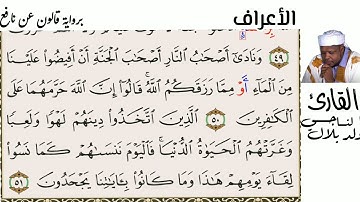 الأعراف
برواية قالون عن نافع
٤٩ وَنَادَىٰ أَصْحَٰبُ النَّارِ أَصْحَٰبَ الْجَنَّةِ أَنْ أَفِيضُوا عَلَيْنَا
مِنَ الْمَآءِ أَوْ مِمَّا رَزَقَكُمُ اللَّهُ قَالُوا إِنَّ اللَّهَ حَرَّمَهُمَا عَلَى
الْكَٰفِرِينَ ٥٠ الَّذِينَ اتَّخَذُوا دِينَهُمْ لَهْوًا وَلَعِبًا
وَغَرَّتْهُمُ الْحَيَوٰةُ الدُّنْيَا فَالْيَوْمَ نَنسَىٰهُمْ كَمَا نَسُوا
لِقَآءَ يَوْمِهِمْ هَٰذَا وَمَا كَانُوا بِـَٔايَٰتِنَا يَجْحَدُونَ ٥١
القارئ